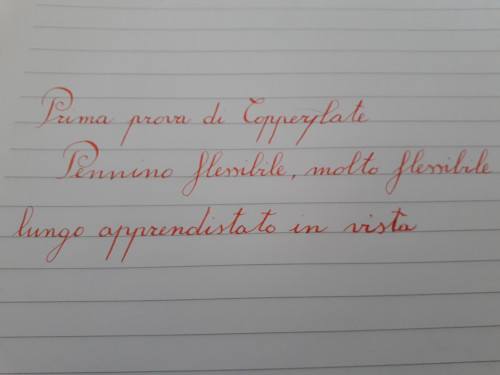 Prima prova di Copperplate
Pennino flessibile, molto flessibile
lungo apprendistato in vista